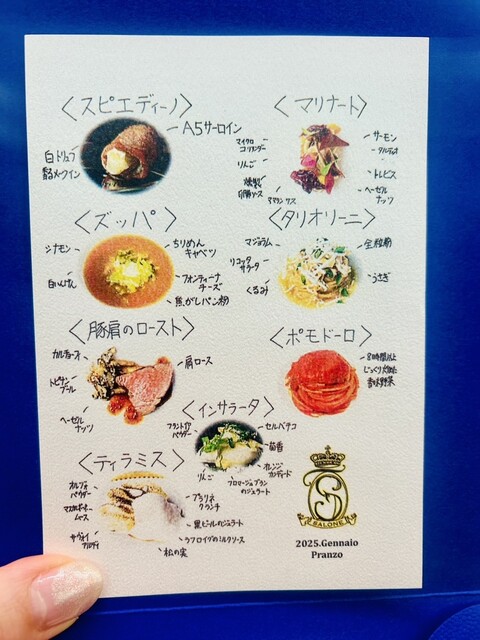 〈スピエディーノ〉
A5サーロイン
白トリュフ
香るメークイン
〈マリナート〉
マイクロ
コリアンダー
りんご
燻製
アマランサス
サーモン
タルティボ
トレビス
ヘーゼル
ナッツ
〈ズッパ〉
シナモン
白いんげん
ちりめん
キャベツ
フォンティーナ
チーズ
焦がしパン粉
〈タリオリーニ〉
マジョラム
リコッタ
サラータ
くるみ
全粒粉
うさぎ
〈豚肩のロースト〉
カルチョーフィ
トピナン
ブール
ヘーゼル
ナッツ
肩ロース
〈ポモドーロ〉
8時間以上
じっくり火入れ
香味野菜
〈インサラータ〉
パウダー
りんご
セルバチコ
茴香
オレンジ
カンディート
フロマージュブラン
のジェラート
〈ティラミス〉
カルフェ
パウダー
マスカルポーネ
ムース
サヴォイ
アルディ
プラリネ
クランチ
黒ビールのジェラート
ラフロイグのミルクソース
松の実
SALONE
2025.Gennaio
Pranzo